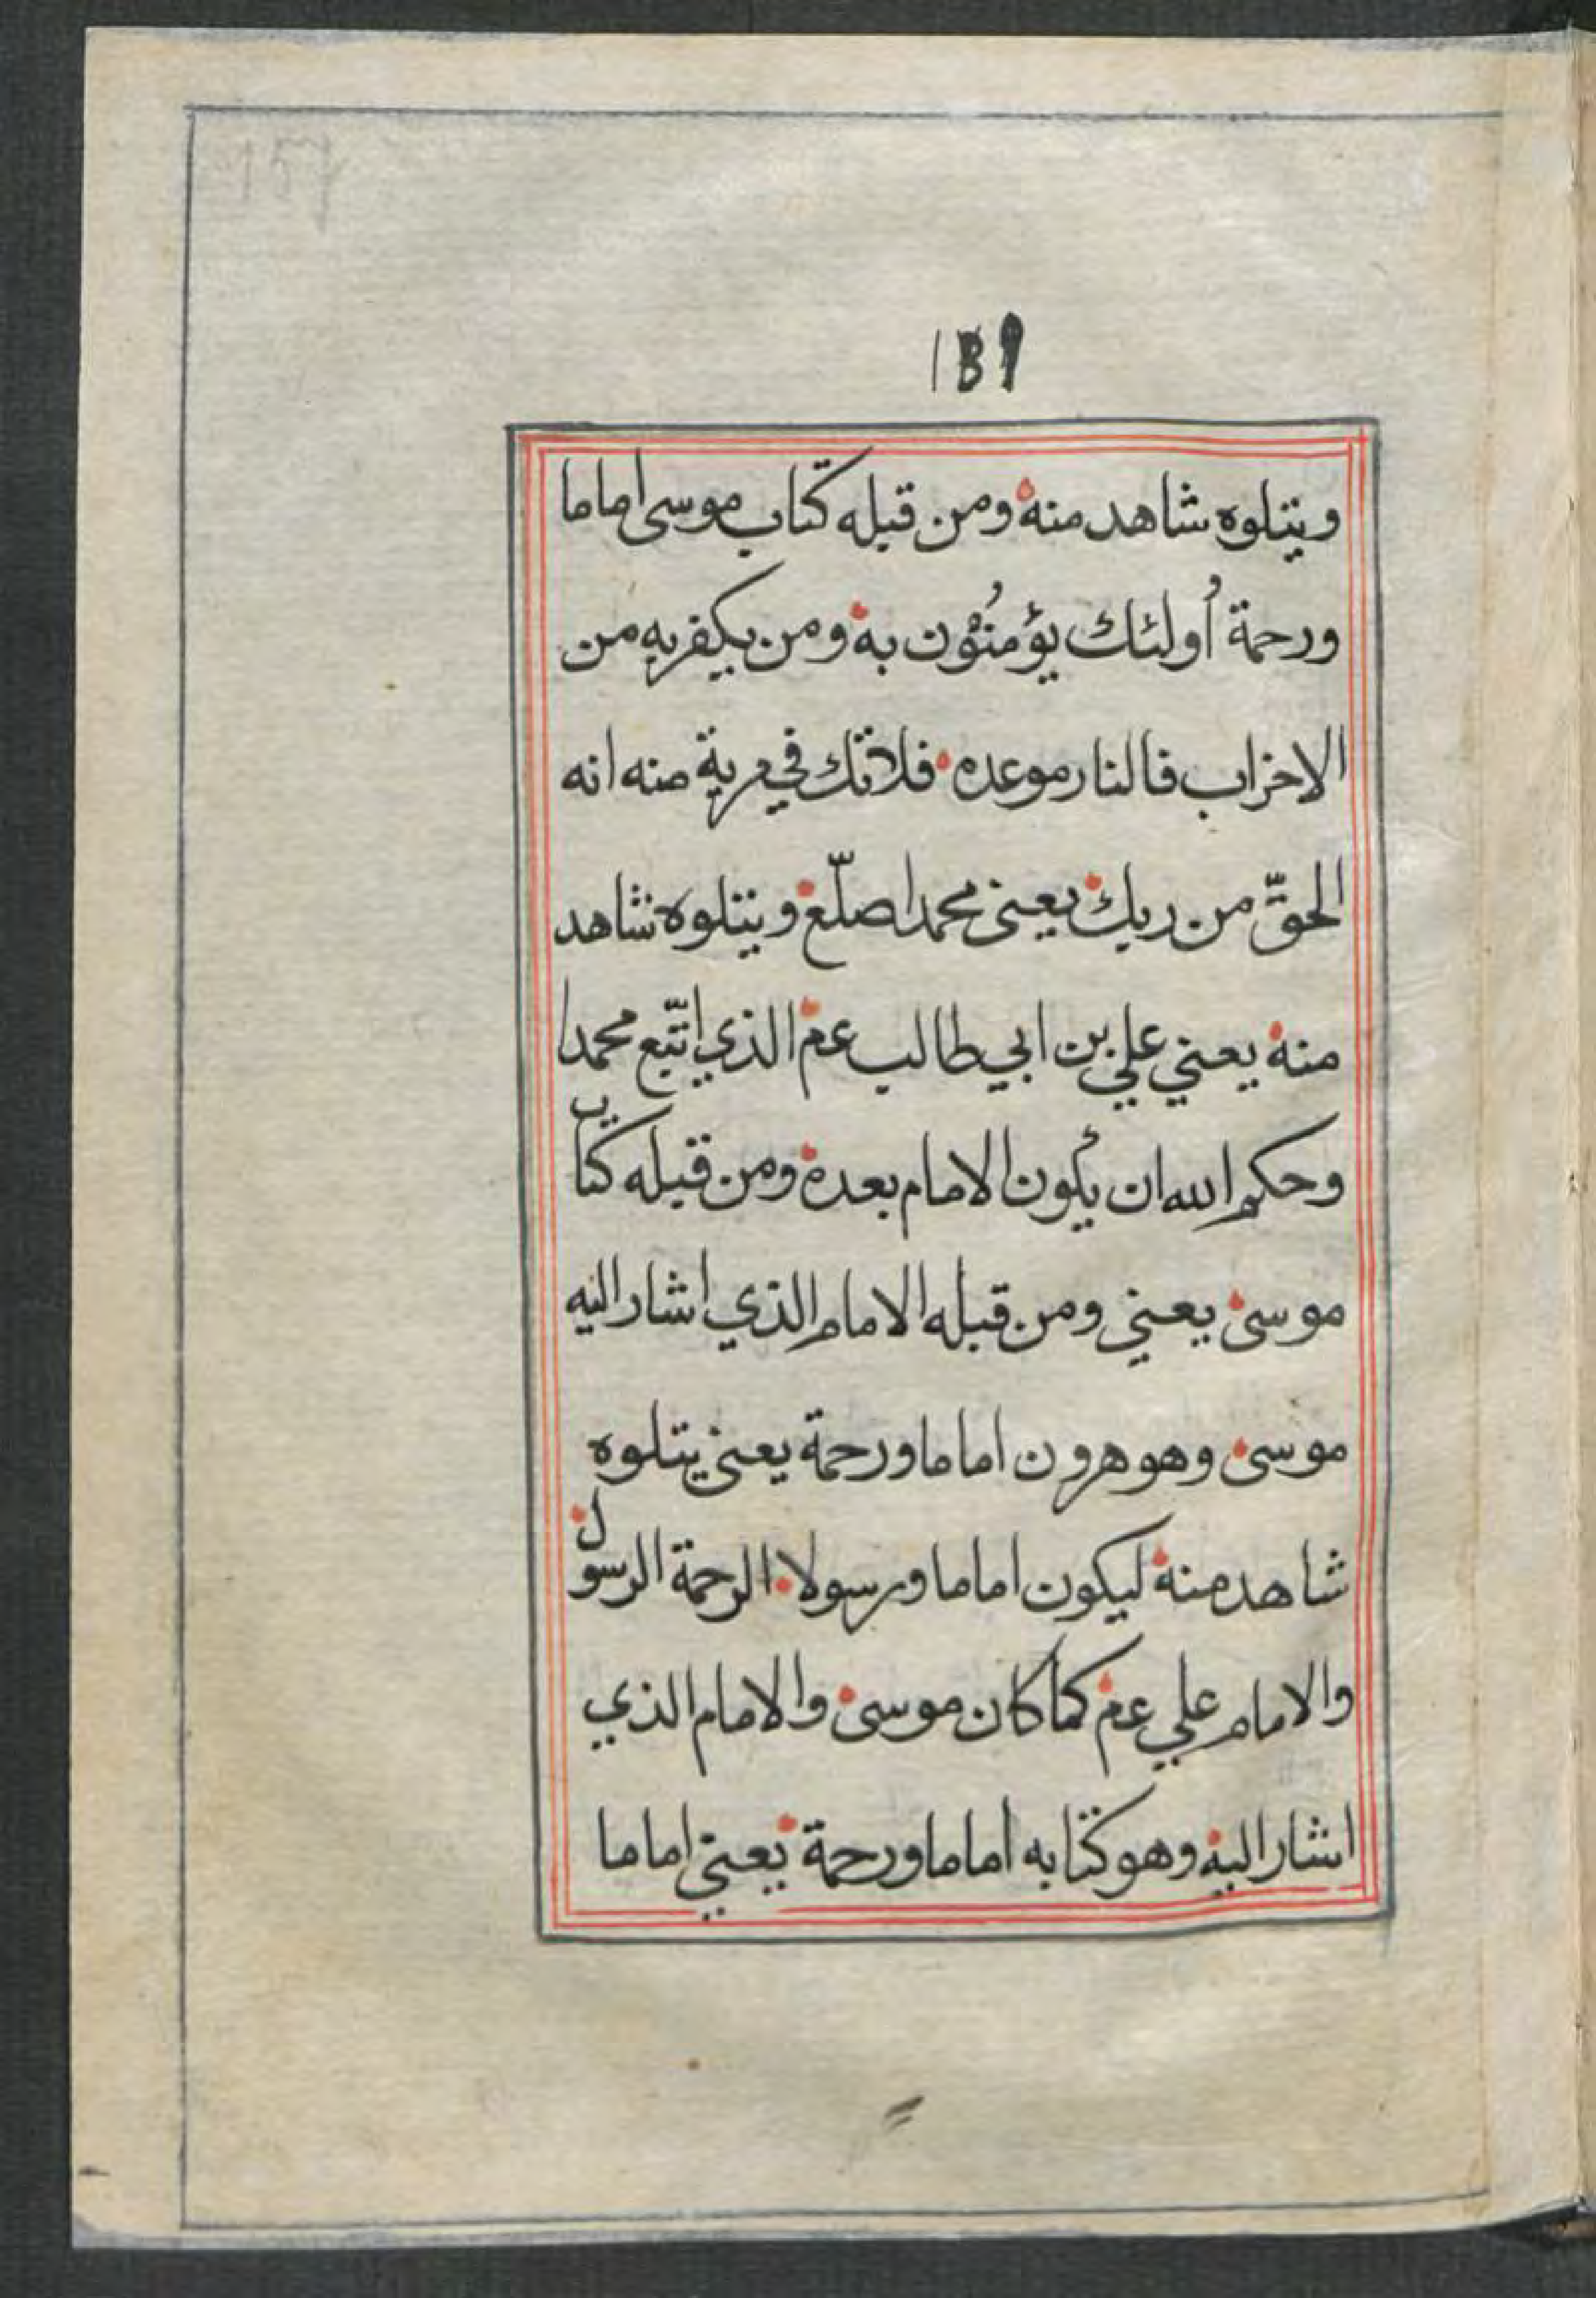 ويتلوه شاهد منه ومن قبله كتاب موسى اماما
ورحمة أُولئك يؤمنُون به ومن يكفر به من
الاحزاب فالنار موعده فلا تك في مرية منه انه
الحقّ من ربك يعني محمدا صلّع ويتلوه شاهد
منه يعني علي بن ابي طالب عم الذي اتّبع محمدا
وحكم الله ان يكون الامام بعده ومن قبله كتاب
موسى يعني ومن قبله الامام الذي اشار اليه
موسى وهو هرون اماما ورحمة يعني يتلوه
شاهد منه ليكون اماما ورسولا الرحمة الرسول
والامام علي عم كما كان موسى والامام الذي
اشار اليه وهو كتابه اماما ورحمة يعني اماما